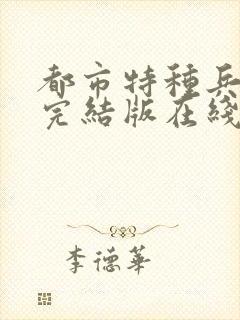 都市特種兵
完結版在綫
李德華